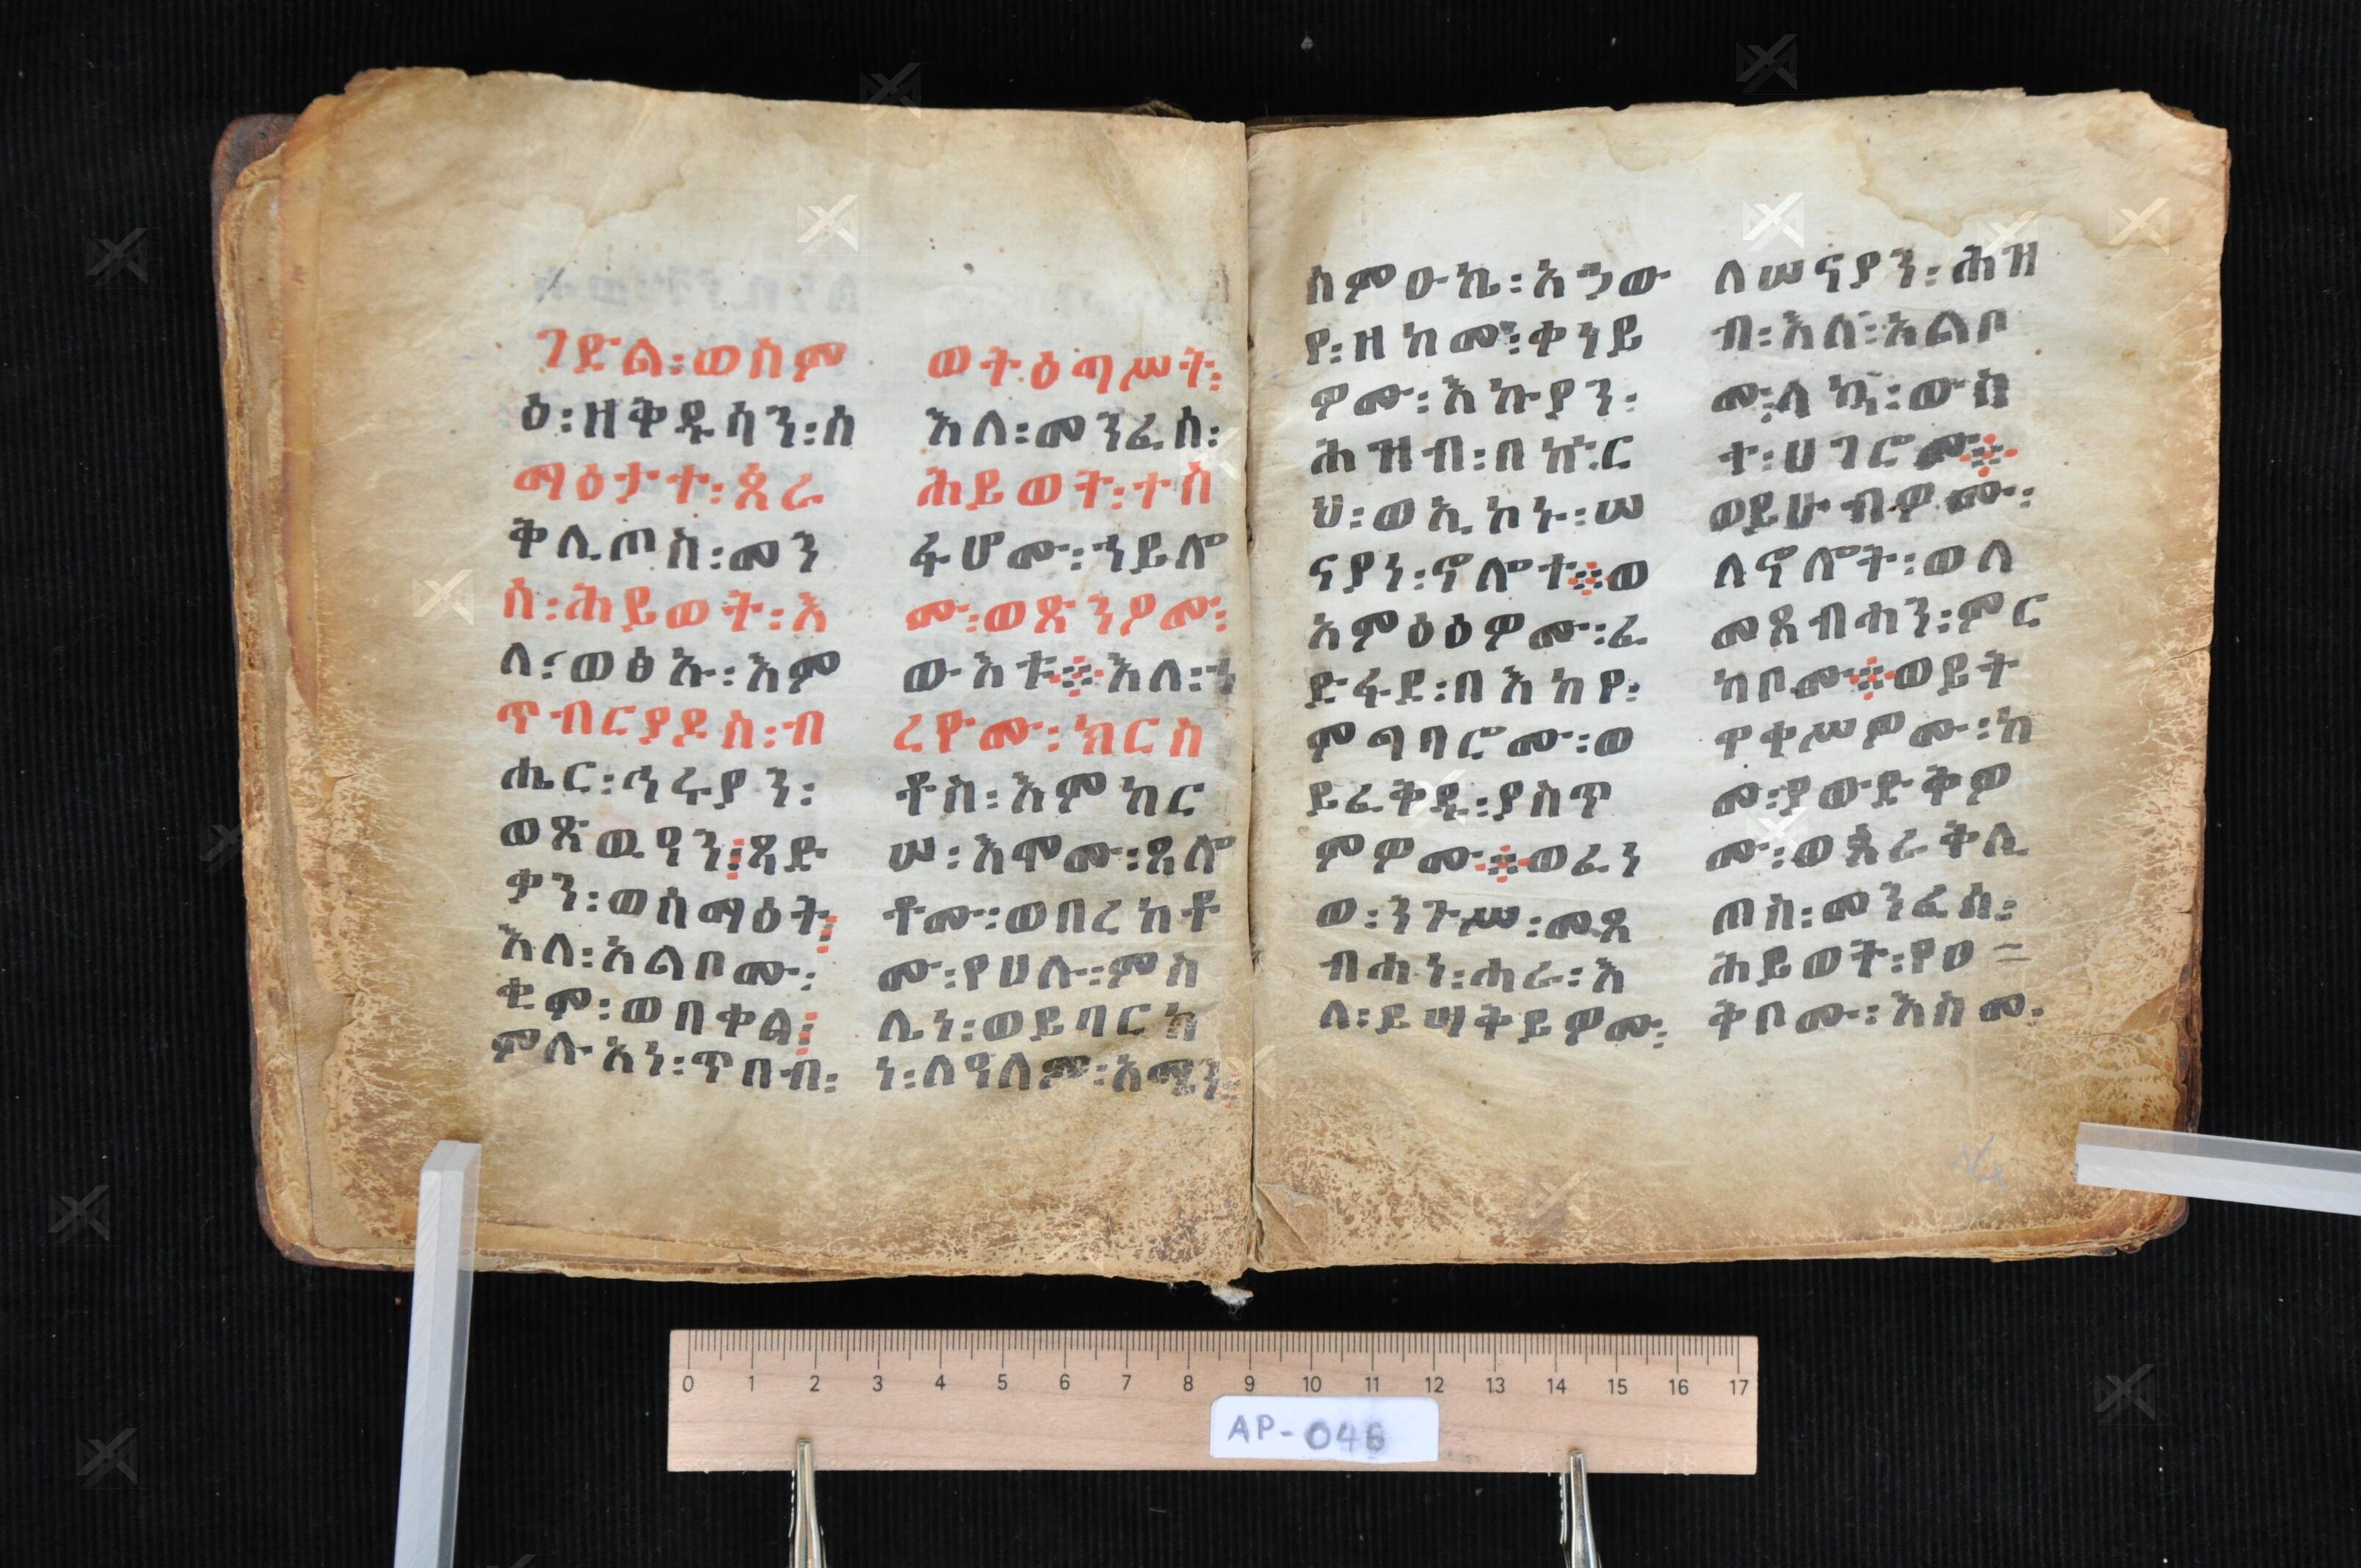 ገድል፡ወስም
ዕ፡ዘቅዱሳን፡ሰ
ማዕታተ፡ጰራ
ቅሊጦስ፡መን
ስ፡ሕይወት፡እ
ለ፡ወፅኡ፡እም
ጥብርያዶስ፡ብ
ሔር፡ኅሩያን፡
ወጽዉዓን፤ጻድ
ቃን፡ወሰማዕት፤
እለ፡አልቦሙ፡
ቂም፡ወበቀል፤
ምሉአነ፡ጥበብ፡
ወትዕግሥት፡
እለ፡መንፈሰ፡
ሕይወት፡ተስ
ፋሆሙ፡ኀይሎ
ሙ፡ወጽንዖሙ፡
ውእቱ፨እለ፡ኀ
ረዮሙ፡ክርስ
ቶስ፡እምከር
ሠ፡እሞሙ፡ጸሎ
ቶሙ፡ወበረከቶ
ሙ፡የሀሉ፡ምስ
ሌነ፡ወይባርከ
ነ፡ለዓለም፡አሜን፨
ስምዑኬ፡አኃው
የ፡ዘከመ፡ቀነይ
ዎሙ፡እኩያን፡
ሕዝብ፡በኵር
ህ፡ወኢኮኑ፡ሠ
ናያነ፡ኖሎተ፨ወ
አምዕዕዎሙ፡ፈ
ድፋደ፡በእከየ፡
ምግባሮሙ፡ወ
ይፈቅዱ፡ያስጥ
ምዎሙ፨ወፈነ
ወ፡ንጉሥ፡መጸ
ብሓነ፡ሓራ፡እ
ለ፡ይሣቅይዎሙ፡
ለሠናያን፡ሕዝ
ብ፡እለ፡አልቦ
ሙ፡ላኳ፡ውስ
ተ፡ሀገሮሙ፨
ወይሁብዎሙ፡
ለኖሎት፡ወለ
መጸብሓን፡ምር
ካቦሙ፨ወይት
ዋቀሥዎሙ፡ከ
መ፡ያውድቅዎ
ሙ፡ወጰራቅሊ
ጦስ፡መንፈስ፡
ሕይወት፡የዐ
ቅቦሙ፡እስመ፡
0 1 2 3 4 5 6 7 8 9 10 11 12 13 14 15 16 17
AP-046